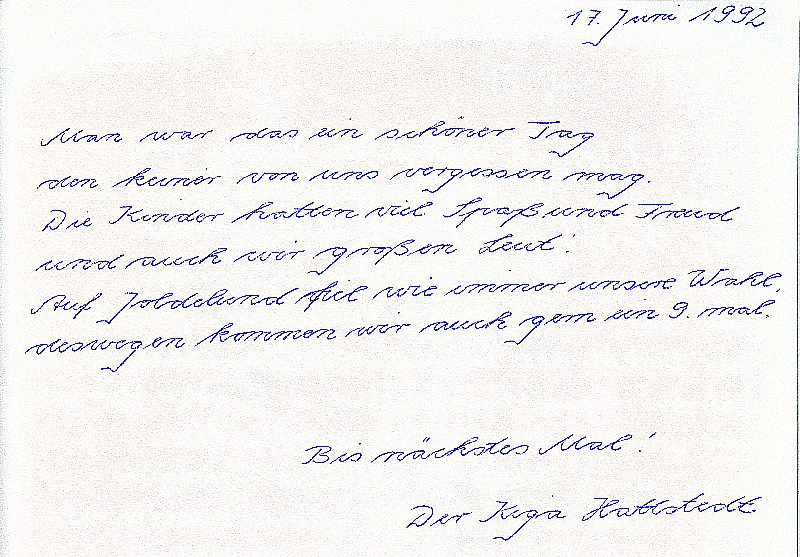 17. Juni 1992
Man war das ein schöner Tag
den keiner von uns vergessen mag.
Die Kinder hatten viel Spaß und Freud
und auch wir großen Leut'.
Auf Joldelund fiel wie immer unsere Wahl,
deswegen kommen wir auch gern ein 9. mal.
Bis nächstes Mal!
Der Kiga Hattstedt